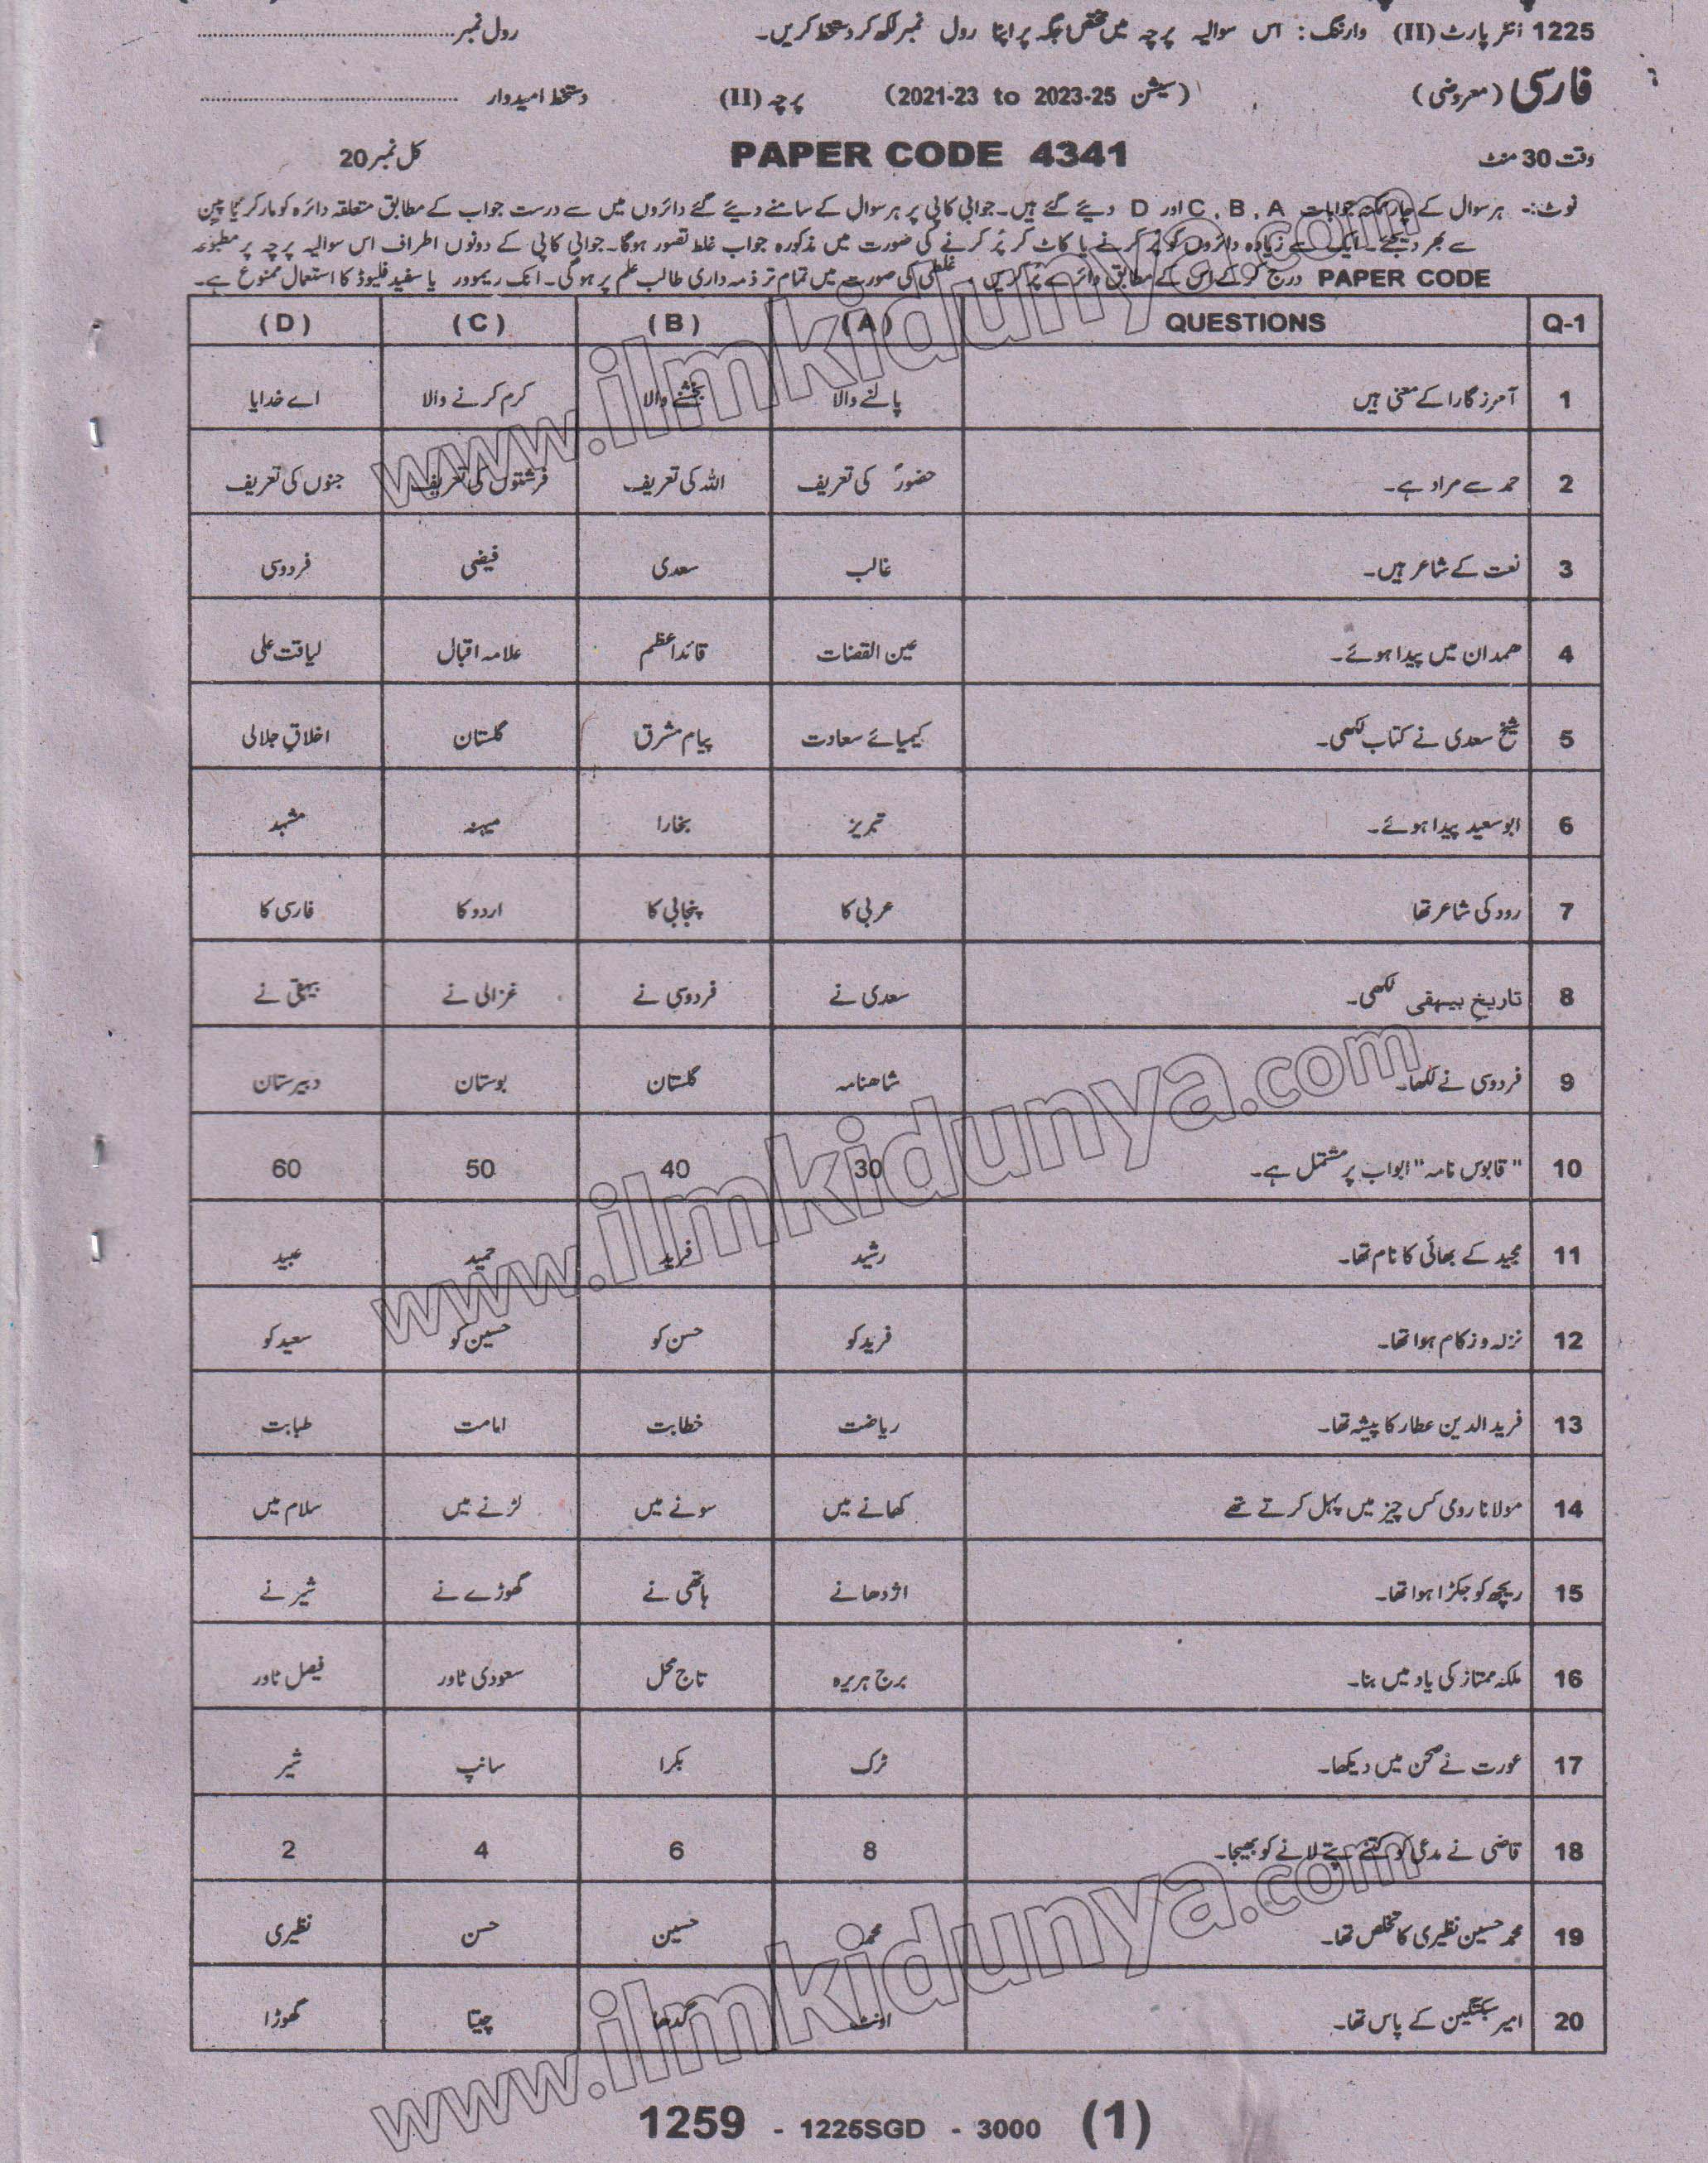 1225 انٹر پارٹ (II) وارننگ: اس سوالیہ پرچہ میں مختص جگہ پر اپنا رول نمبر لکھ کر دستخط کریں۔ رول نمبر
فارسی (معروضی) (سیشن 2021-23 to 2023-25) پرچہ (II) دستخط امیدوار
وقت 30 منٹ PAPER CODE 4341 کل نمبر 20
نوٹ:- ہر سوال کے چار ممکنہ جوابات A , B , C اور D دیئے گئے ہیں۔ جوابی کاپی پر ہر سوال کے سامنے دیئے گئے دائروں میں سے درست جواب کے مطابق متعلقہ دائرہ کو مارکر یا پین
سے بھر دیجئے۔ ایک سے زیادہ دائروں کو پُر کرنے یا کاٹ کر پُر کرنے کی صورت میں مذکورہ جواب غلط تصور ہوگا۔ جوابی کاپی کے دونوں اطراف اس سوالیہ پرچہ پر مطبوعہ
PAPER CODE درج کر کے اس کے مطابق دائرے پُر کریں، غلطی کی صورت میں تمام تر ذمہ داری طالب علم پر ہوگی۔ انک ریموور یا سفید فلیوڈ کا استعمال ممنوع ہے۔
Q-1 QUESTIONS (A) (B) (C) (D)
1 آمرزگارا کے معنی ہیں پالنے والا بخشنے والا کرم کرنے والا اے خدایا
2 حمد سے مراد ہے۔ حضورؐ کی تعریف اللہ کی تعریف فرشتوں کی تعریف جنوں کی تعریف
3 نعت کے شاعر ہیں۔ غالب سعدی فیضی فردوسی
4 ھمدان میں پیدا ہوئے۔ عین القضات قائداعظم علامہ اقبال لیاقت علی
5 شیخ سعدی نے کتاب لکھی۔ کیمیائے سعادت پیام مشرق گلستان اخلاقِ جلالی
6 ابوسعید پیدا ہوئے۔ تبریز بخارا میہنہ مشہد
7 رودکی شاعر تھا عربی کا پنجابی کا اردو کا فارسی کا
8 تاریخِ بیہقی لکھی۔ سعدی نے فردوسی نے غزالی نے بیہقی نے
9 فردوسی نے لکھا۔ شاھنامہ گلستان بوستان دبیرستان
10 "قابوس نامہ" ابواب پر مشتمل ہے۔ 30 40 50 60
11 مجید کے بھائی کا نام تھا۔ رشید فرید حمید عبید
12 نزلہ و زکام ہوا تھا۔ فرید کو حسن کو حسین کو سعید کو
13 فرید الدین عطار کا پیشہ تھا۔ ریاضت خطابت امامت طبابت
14 مولانا رومی کس چیز میں پہل کرتے تھے کھانے میں سونے میں لڑنے میں سلام میں
15 ریچھ کو جکڑا ہوا تھا۔ اژدھا نے ہاتھی نے گھوڑے نے شیر نے
16 ملکہ ممتاز کی یاد میں بنا۔ برج ہریرہ تاج محل سعودی ٹاور فیصل ٹاور
17 عورت نے صحن میں دیکھا۔ ٹرک بکرا سانپ شیر
18 قاضی نے مدعی کو کتنے پتے لانے کو بھیجا۔ 8 6 4 2
19 محمد حسین نظیری کا تخلص تھا۔ محمد حسین حسن نظیری
20 امیر سبکتگین کے پاس تھا۔ اونٹ گدھا چیتا گھوڑا
1259 - 1225SGD - 3000 (1)
www.ilmkidunya.com
www.ilmkidunya.com
www.ilmkidunya.com